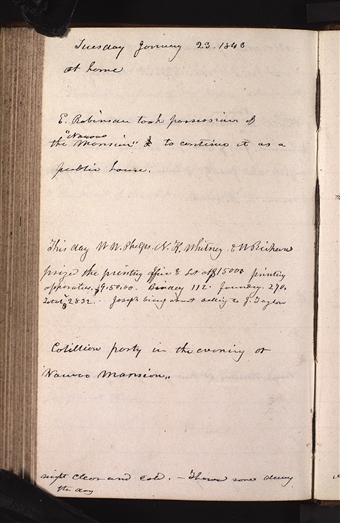 Tuesday January 23. 1843
at home
E. Robinson took possession of
"Nauvoo
the Mansion" & to continue it as a
public house.
This day W. W. Phelps. N. K. Whitney. & W Richards
prized the printing office & Lot at $1500 printing
apparatus, 950.00. Bindery 112. foundry. 270.
Total 2832. Joseph being about selling to J. Taylor
Cotillion party in the evening at
Nauvoo Mansion.
night clear and cold. — Thaw some during
the day